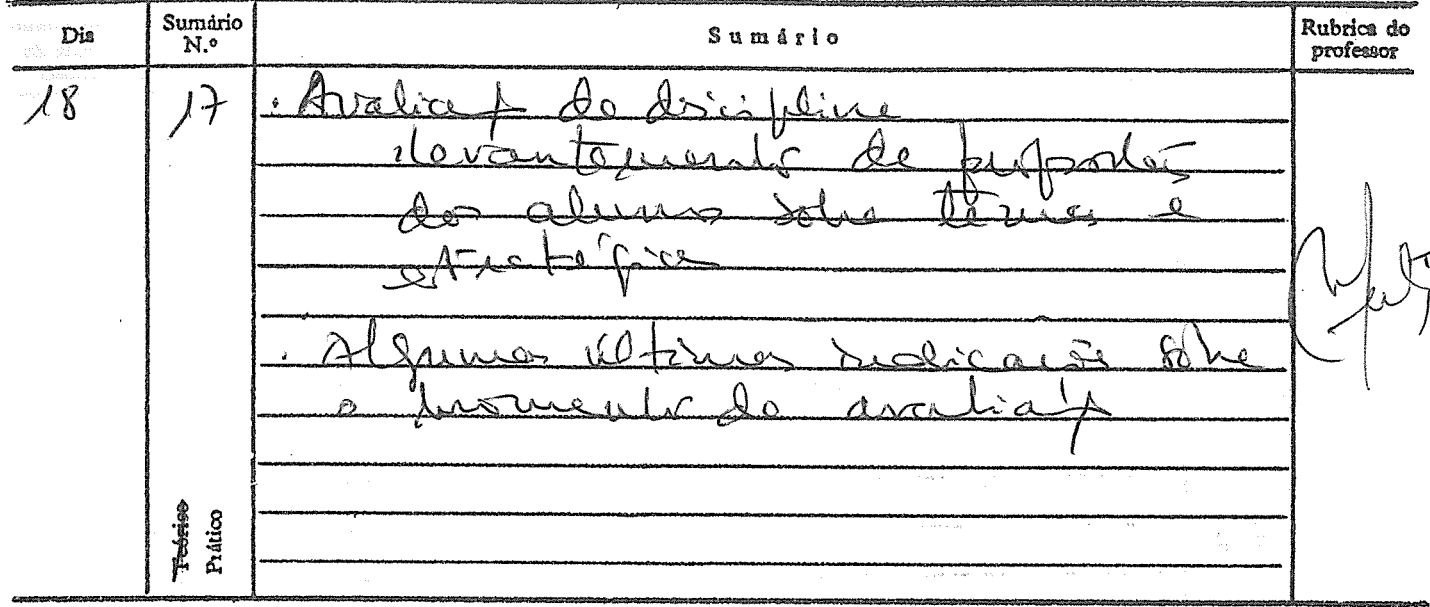 Dia
Sumário N.º
Sumário
Rubrica do professor
18
17
. Avaliação da disciplina
levantamento de propostas
dos alunos sobre temas e
estratégias
. Algumas últimas indicações sobre
o momento da avaliação
Teórico
Prático